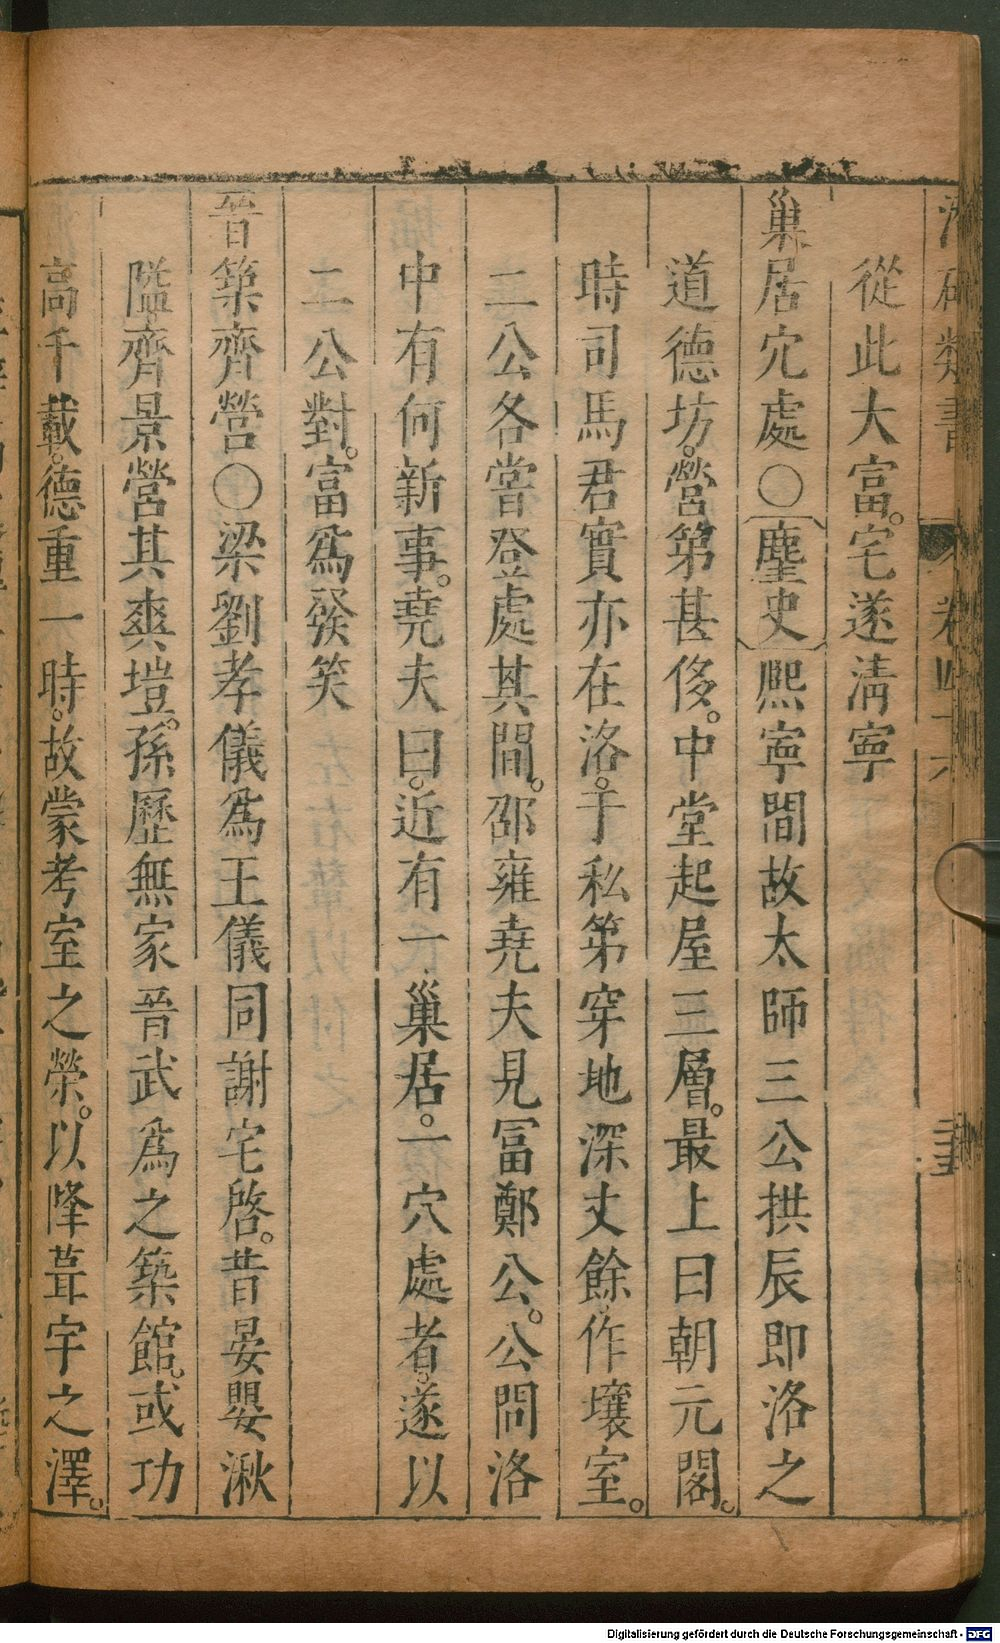 類書
卷四十六
從此大富。宅遂淸寧
巢居宂處○〔麈史〕熈寜間故太師三公拱辰即洛之
道德坊。營第甚侈。中堂起屋三層。最上曰朝元閣。
時司馬君實亦在洛。于私第穿地深丈餘。作壤室。
二公各嘗登處其間。邵雍堯夫見冨鄭公。公問洛
中有何新事。堯夫曰。近有一巢居。一穴處者。遂以
二公對。富爲發笑
晉築齊營○梁劉孝儀爲王儀同謝宅啓。昔晏嬰湫
隘。齊景營其爽塏。孫歷無家晉武爲之築館。或功
高千載。德重一時。故蒙考室之榮。以降葺宇之澤。
Digitalisierung gefördert durch die Deutsche Forschungsgemeinschaft - DFG